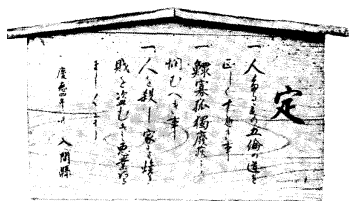 定
一 人たるもの五倫の道を
正しくすへき事
一 鰥寡孤獨癈疾のものを
憫むへき事
一 人を殺し家を焼き
財を盗む等の悪業ある
ましく事
慶應四年 月 入間縣